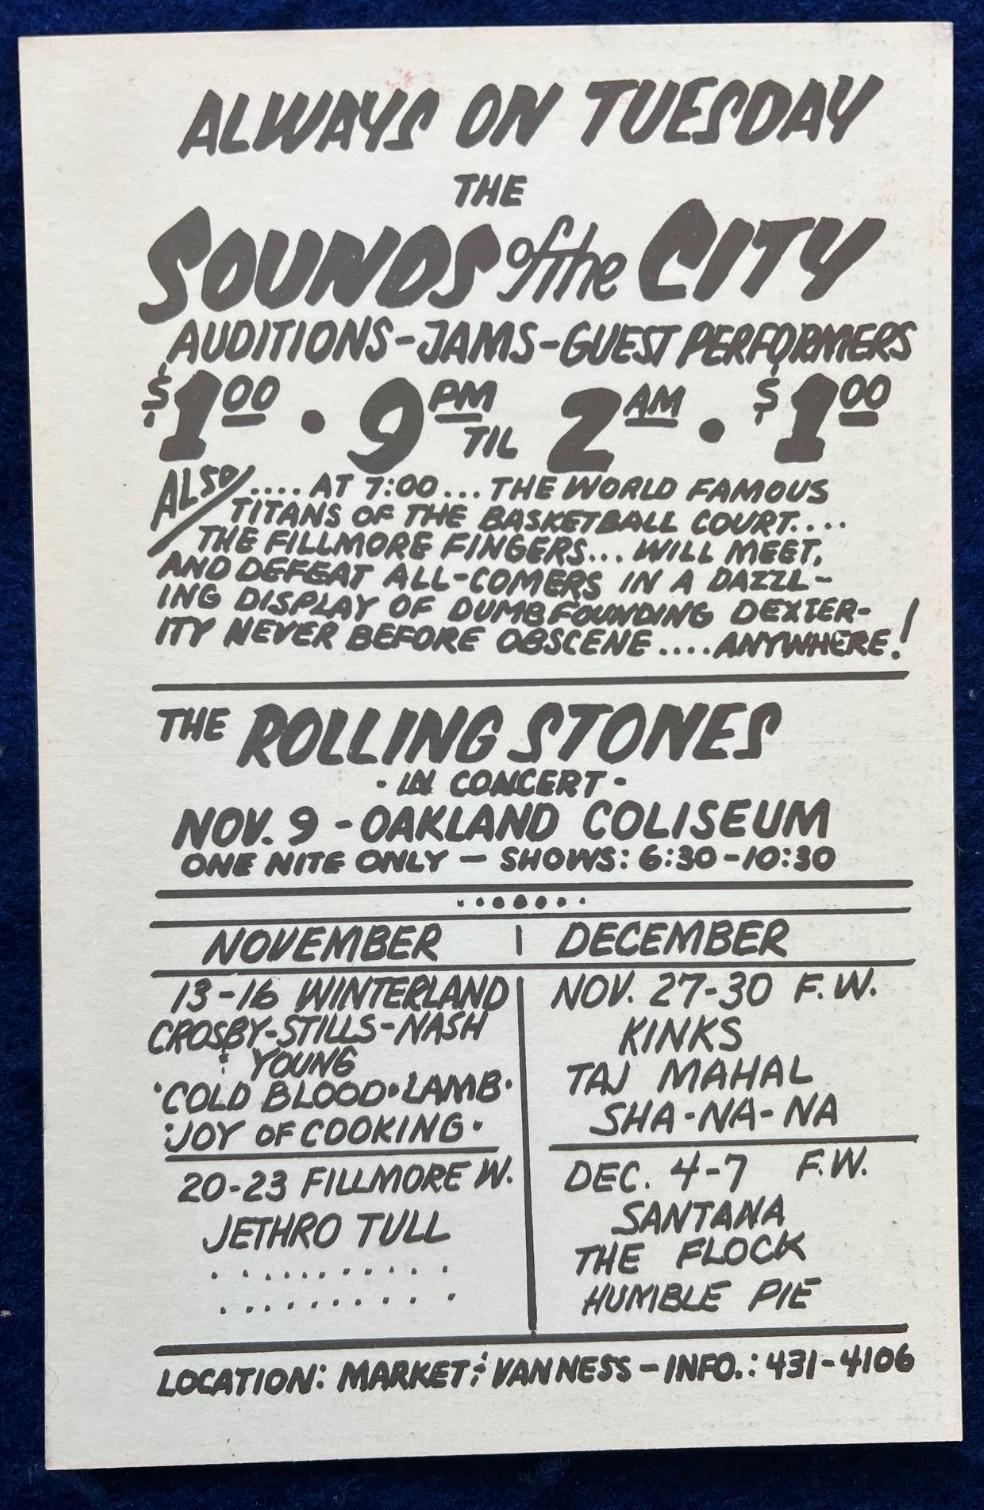 ALWAYS ON TUESDAY
THE
SOUNDS of the CITY
AUDITIONS-JAMS-GUEST PERFORMERS
$1.00 • 9 PM TIL 2 AM • $1.00
ALSO/.... AT 7:00... THE WORLD FAMOUS
TITANS OF THE BASKETBALL COURT....
THE FILLMORE FINGERS... WILL MEET,
AND DEFEAT ALL-COMERS IN A DAZZL-
ING DISPLAY OF DUMBFOUNDING DEXTER-
ITY NEVER BEFORE OBSCENE ....ANYWHERE!
THE ROLLING STONES
- IN CONCERT -
NOV. 9 - OAKLAND COLISEUM
ONE NITE ONLY - SHOWS: 6:30-10:30
NOVEMBER | DECEMBER
13-16 WINTERLAND
CROSBY-STILLS-NASH
& YOUNG
•COLD BLOOD•LAMB•
•JOY OF COOKING•
20-23 FILLMORE W.
JETHRO TULL
NOV. 27-30 F.W.
KINKS
TAJ MAHAL
SHA-NA-NA
DEC. 4-7 F.W.
SANTANA
THE FLOCK
HUMBLE PIE
LOCATION: MARKET & VAN NESS - INFO.: 431-4106